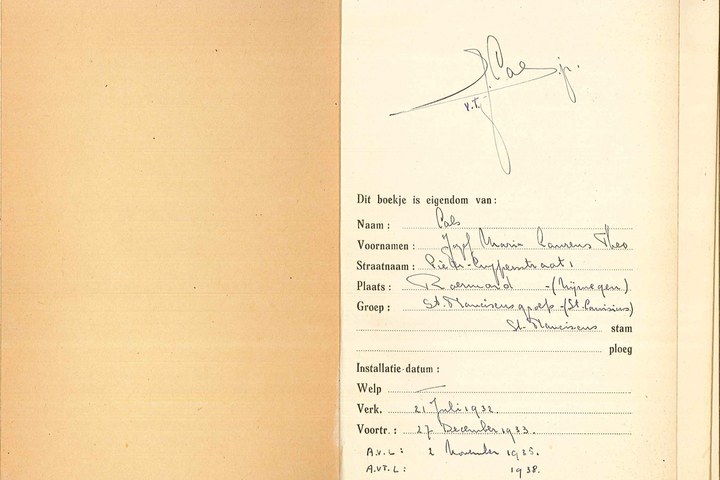 J. Cals. jr.
v.T.
Dit boekje is eigendom van:
Naam: Cals
Voornamen: Jozef Maria Laurens Theo
Straatnaam: 1
Plaats: Roermond - (Nijmegen)
Groep: St. Franciscusgroep - (St. Canisius)
St. Franciscus stam
ploeg
Installatie-datum:
Welp —
Verk. 21 Juli 1932.
Voortr.: 27 December 1933.
A.v.L: 2 November 1935.
A.VT.L: 1938.